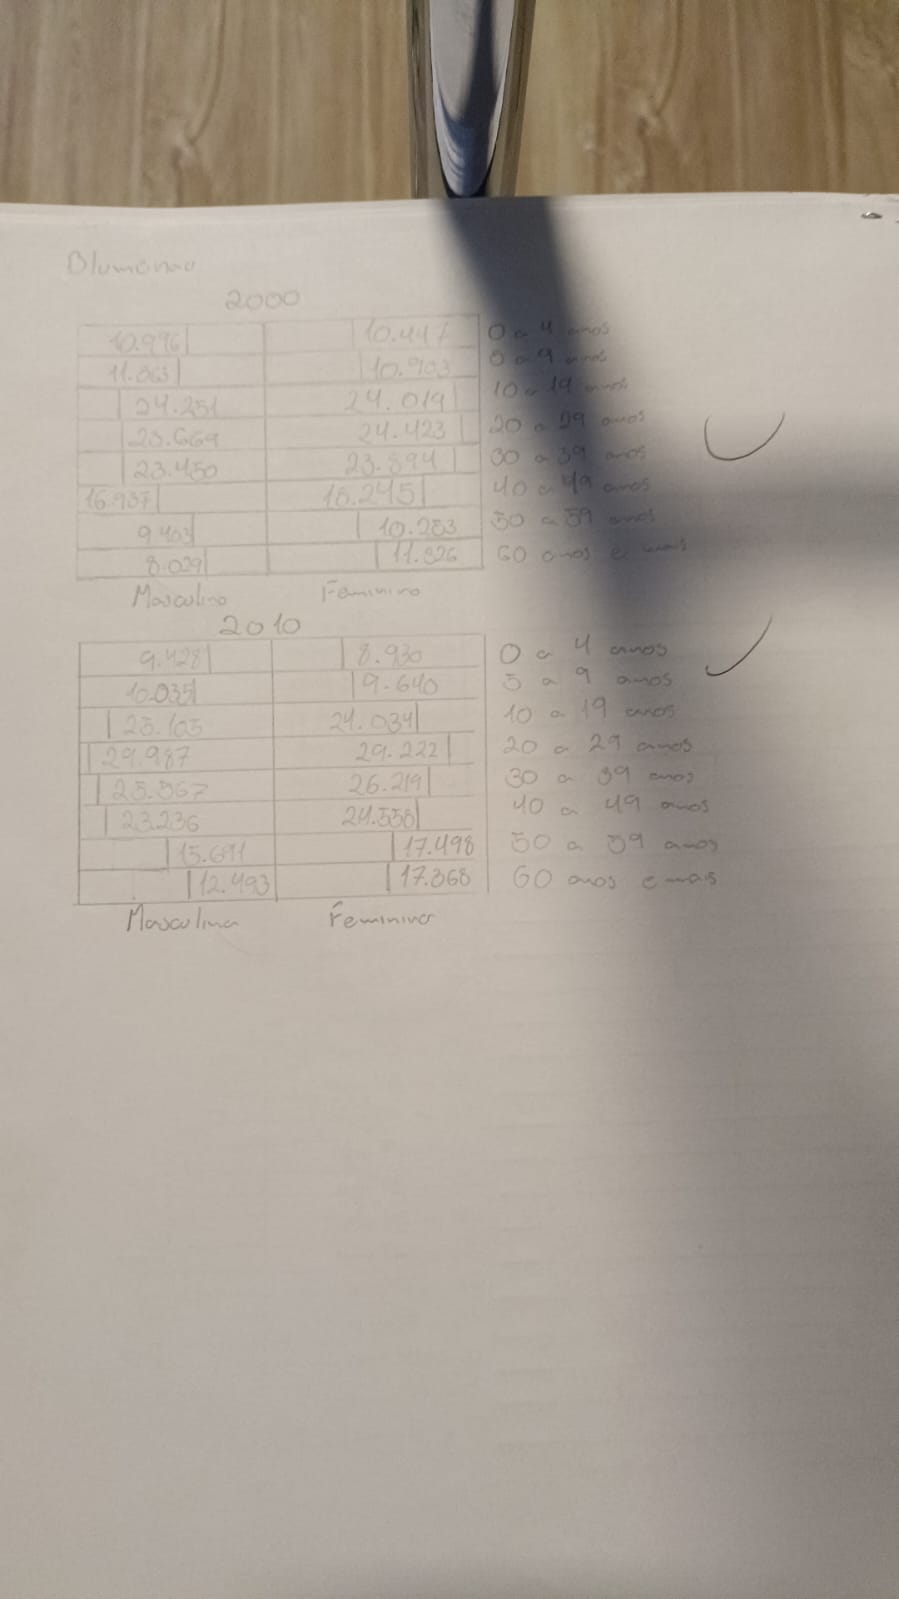 Blumenau
2000
10.996 10.447 0 a 4 anos
11.363 10.903 5 a 9 anos
24.251 24.019 10 a 19 anos
23.669 24.423 20 a 29 anos
23.450 23.894 30 a 39 anos
16.937 18.245 40 a 49 anos
9.403 10.283 50 a 59 anos
8.029 11.326 60 anos e mais
Masculino Feminino
2010
9.428 8.930 0 a 4 anos
10.035 9.640 5 a 9 anos
25.105 24.034 10 a 19 anos
29.987 29.222 20 a 29 anos
25.567 26.219 30 a 39 anos
23.236 24.556 40 a 49 anos
15.691 17.498 50 a 59 anos
12.493 17.368 60 anos e mais
Masculina Feminina